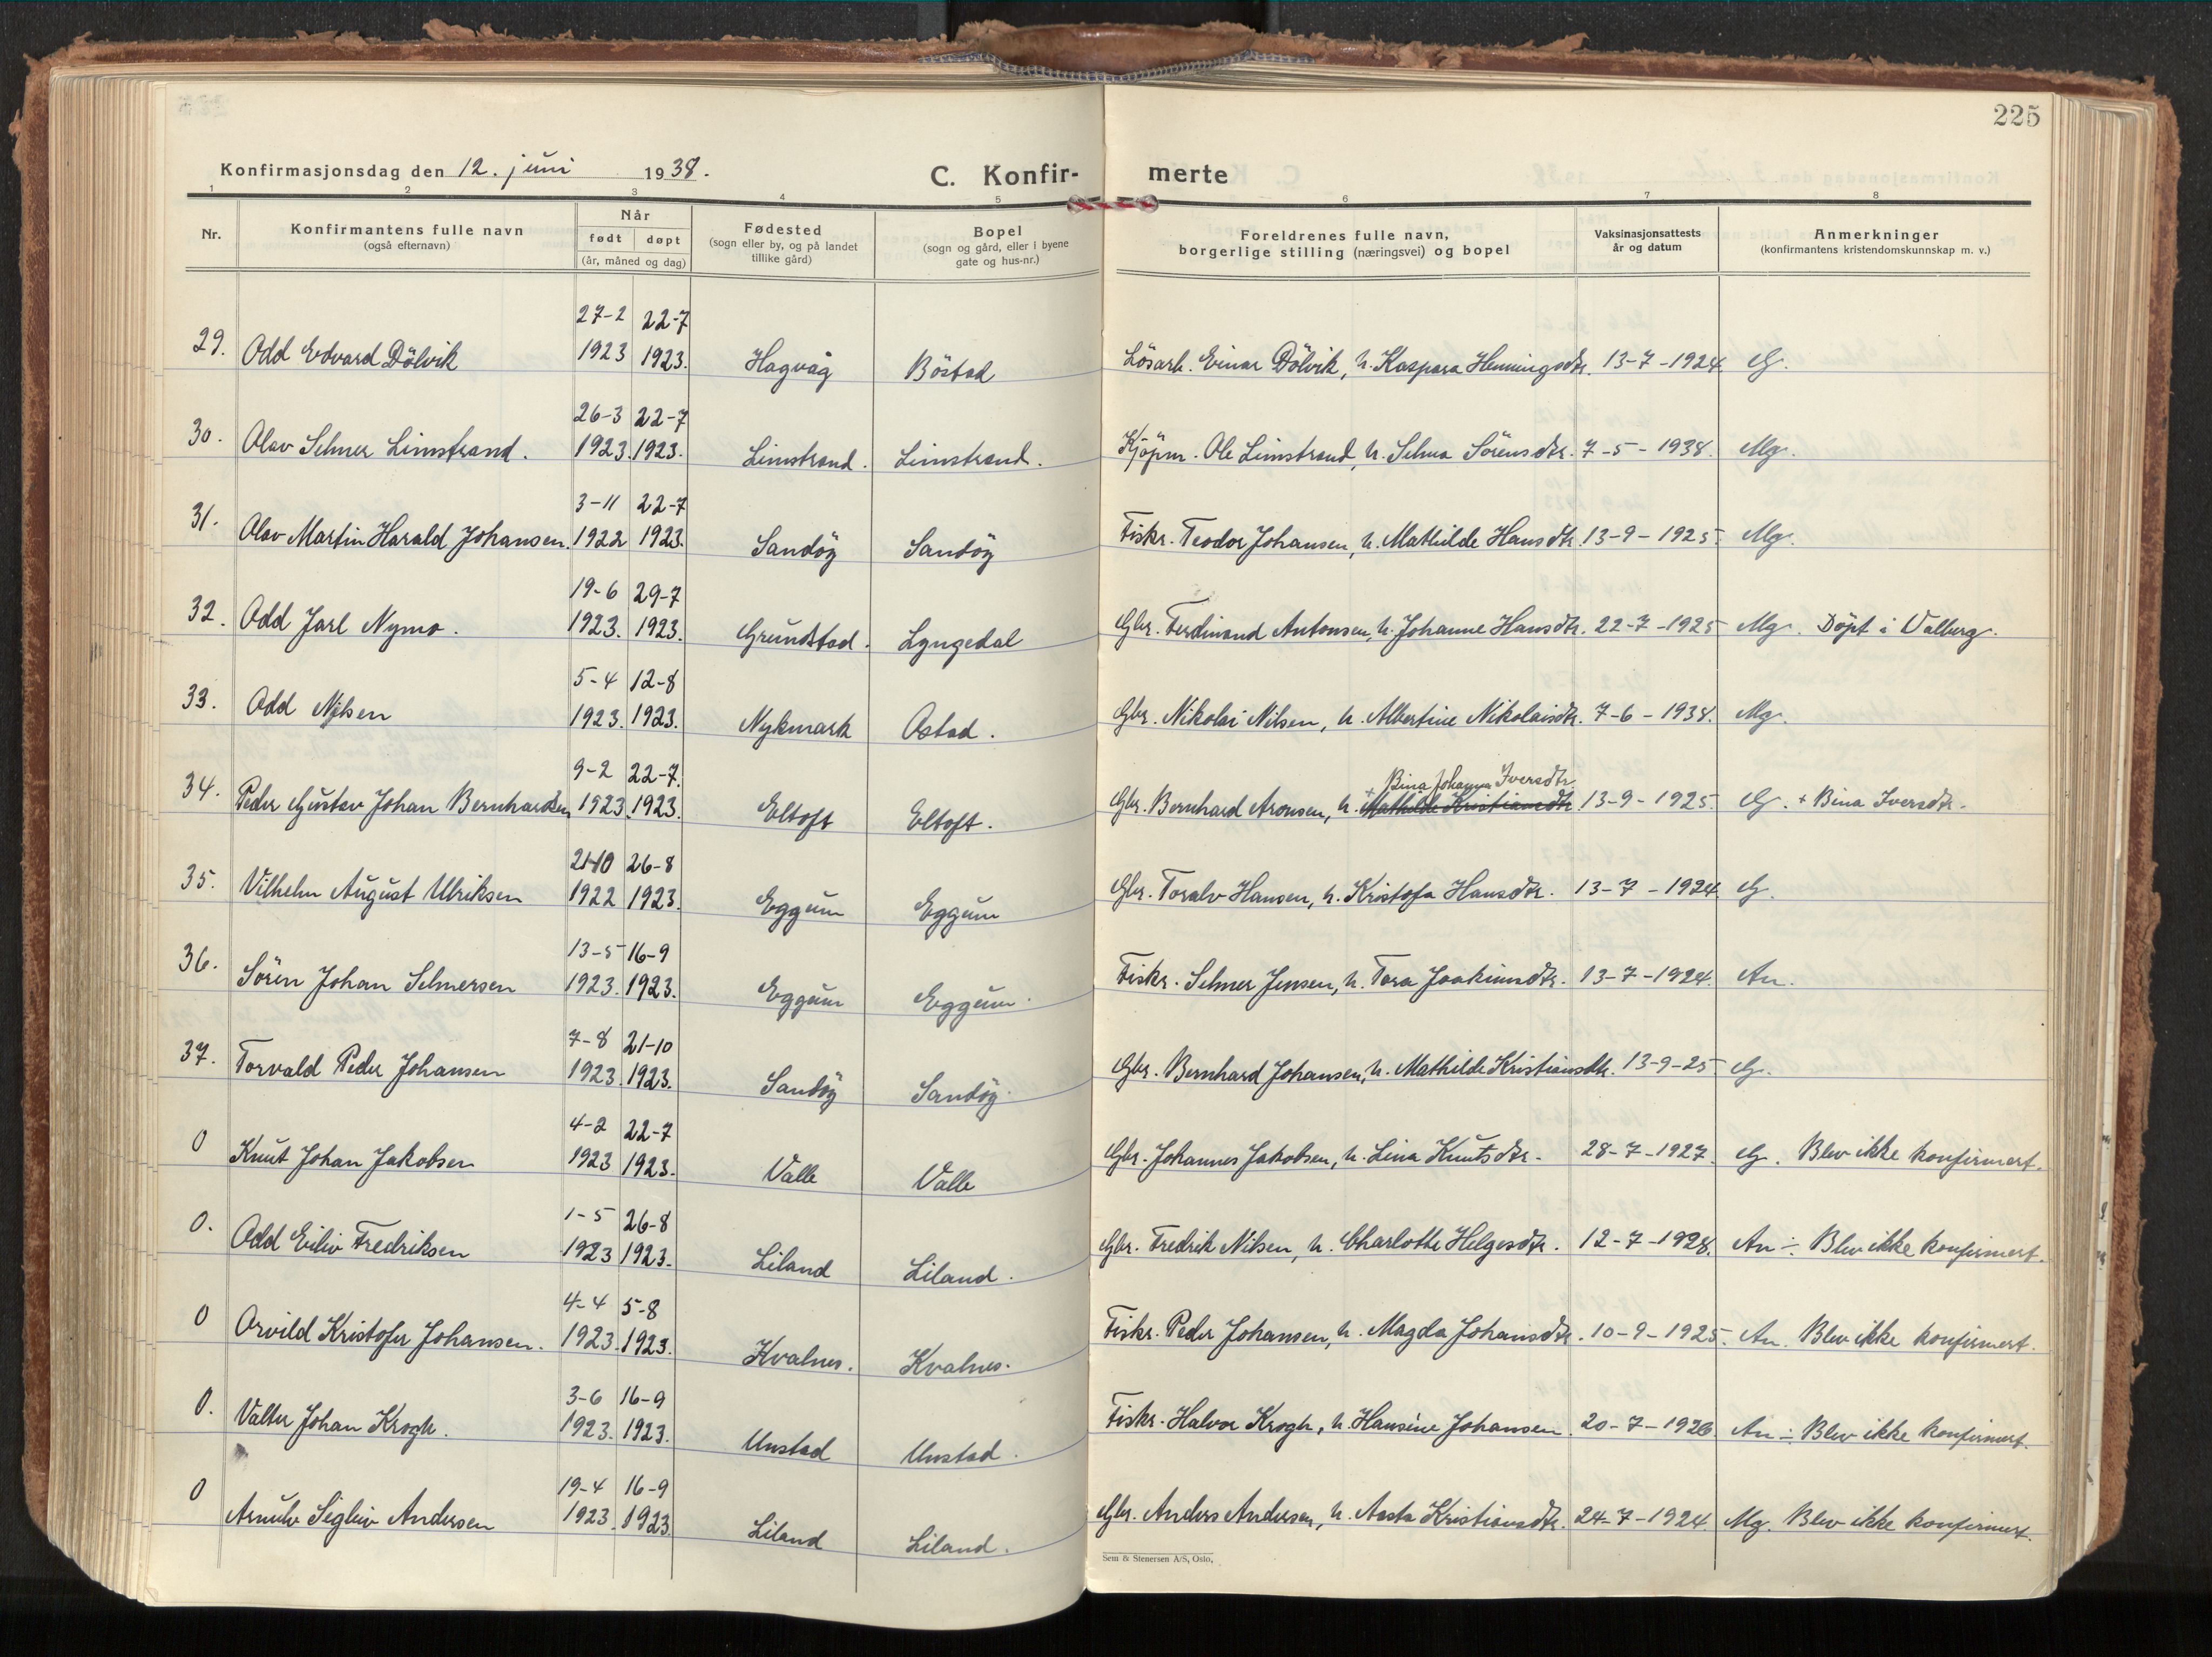 225
Konfirmasjonsdag den 12. juni 1938.
C. Konfir- merte
1 2 3 4 5 6 7 8
Nr.
Konfirmantens fulle navn
(også efternavn)
Når
født døpt
(år, måned og dag)
Fødested
(sogn eller by, og på landet
tillike gård)
Bopel
(sogn og gård, eller i byene
gate og hus-nr.)
Foreldrenes fulle navn,
borgerlige stilling (næringsvei) og bopel
Vaksinasjonsattests
år og datum
Anmerkninger
(konfirmantens kristendomskunnskap m. v.)
27-2 22-7
29. Odd Edvard Dölvik 1923 1923. Hagvåg Böstad Lösarb. Einar Dölvik, h. Kaspara Henningsdtr. 13-7-1924. G.
26-3 22-7
30. Olav Selmer Limstrand. 1923. 1923. Limstrand. Limstrand. Kjöpm. Ole Limstrand, h. Selma Sörensdtr. 7-5-1938. Mg.
3-11 22-7
31. Olav Martin Harald Johansen. 1922 1923. Sandöy Sandöy Fiskr. Teodor Johansen, h. Mathilde Hansdtr. 13-9-1925. Mg.
19-6 29-7
32. Odd Jarl Nymo. 1923. 1923. Grundstad. Lyngedal Gbr. Ferdinand Antonsen, h. Johanne Hansdtr. 22-7-1925 Mg. Döpt i Valberg.
5-4 12-8
33. Odd Nilsen 1923. 1923. Nykmark Ostad. Gbr. Nikolai Nilsen, h. Albertine Nikolaisdtr. 7-6-1938. Mg.
9-2 22-7. + Bina Johanna Iversdtr.
34. Peder Gustav Johan Bernhardsen 1923. 1923. Eltoft Eltoft. Gbr. Bernhard Aronsen, h. Mathilde Kristiansdtr 13-9-1925. G. + Bina Iversdtr.
21-10 26-8
35. Vilhelm August Ulriksen 1922 1923. Eggum Eggum Gbr. Toralv Hansen, h. Kristofa Hansdtr. 13-7-1924. G.
13-5 16-9
36. Sören Johan Selmersen 1923. 1923. Eggum Eggum. Fiskr. Selmer Jensen, h. Tora Joakimsdtr. 13-7-1924. An.
7-8 21-10
37. Torvald Peder Johansen 1923. 1923. Sandöy Sandöy. Gbr. Bernhard Johansen, h. Mathilde Kristiansdtr. 13-9-25 G.
4-2 22-7
0 Knut Johan Jakobsen 1923 1923. Valle Valle Gbr. Johannes Jakobsen, h. Lina Knutsdtr. 28-7-1927. G. Blev ikke konfirmert.
1-5 26-8
0. Odd Eiliv Fredriksen 1923 1923. Liland Liland. Gbr. Fredrik Nilsen, h. Charlotte Helgesdtr. 12-7-1928. An ÷. Blev ikke konfirmert.
4-4 5-8
0 Arvild Kristofer Johansen. 1923. 1923. Kvalnes. Kvalnes. Fiskr. Peder Johansen, h. Magda Johansdtr. 10-9-1925. An. Blev ikke konfirmert.
3-6 16-9
0. Valter Johan Krogh. 1923. 1923. Unstad Unstad. Fiskr. Halvor Krogh, h. Hansine Johansen. 20-7-1926 An ÷. Blev ikke konfirmert.
19-4 16-9
0 Arnulv Sigleiv Andersen 1923. 1923 Liland Liland. Gbr. Anders Andersen, h. Aasta Kristiansdtr. 24-7-1924. Mg. Blev ikke konfirmert.
Sem & Stenersen A/S, Oslo.